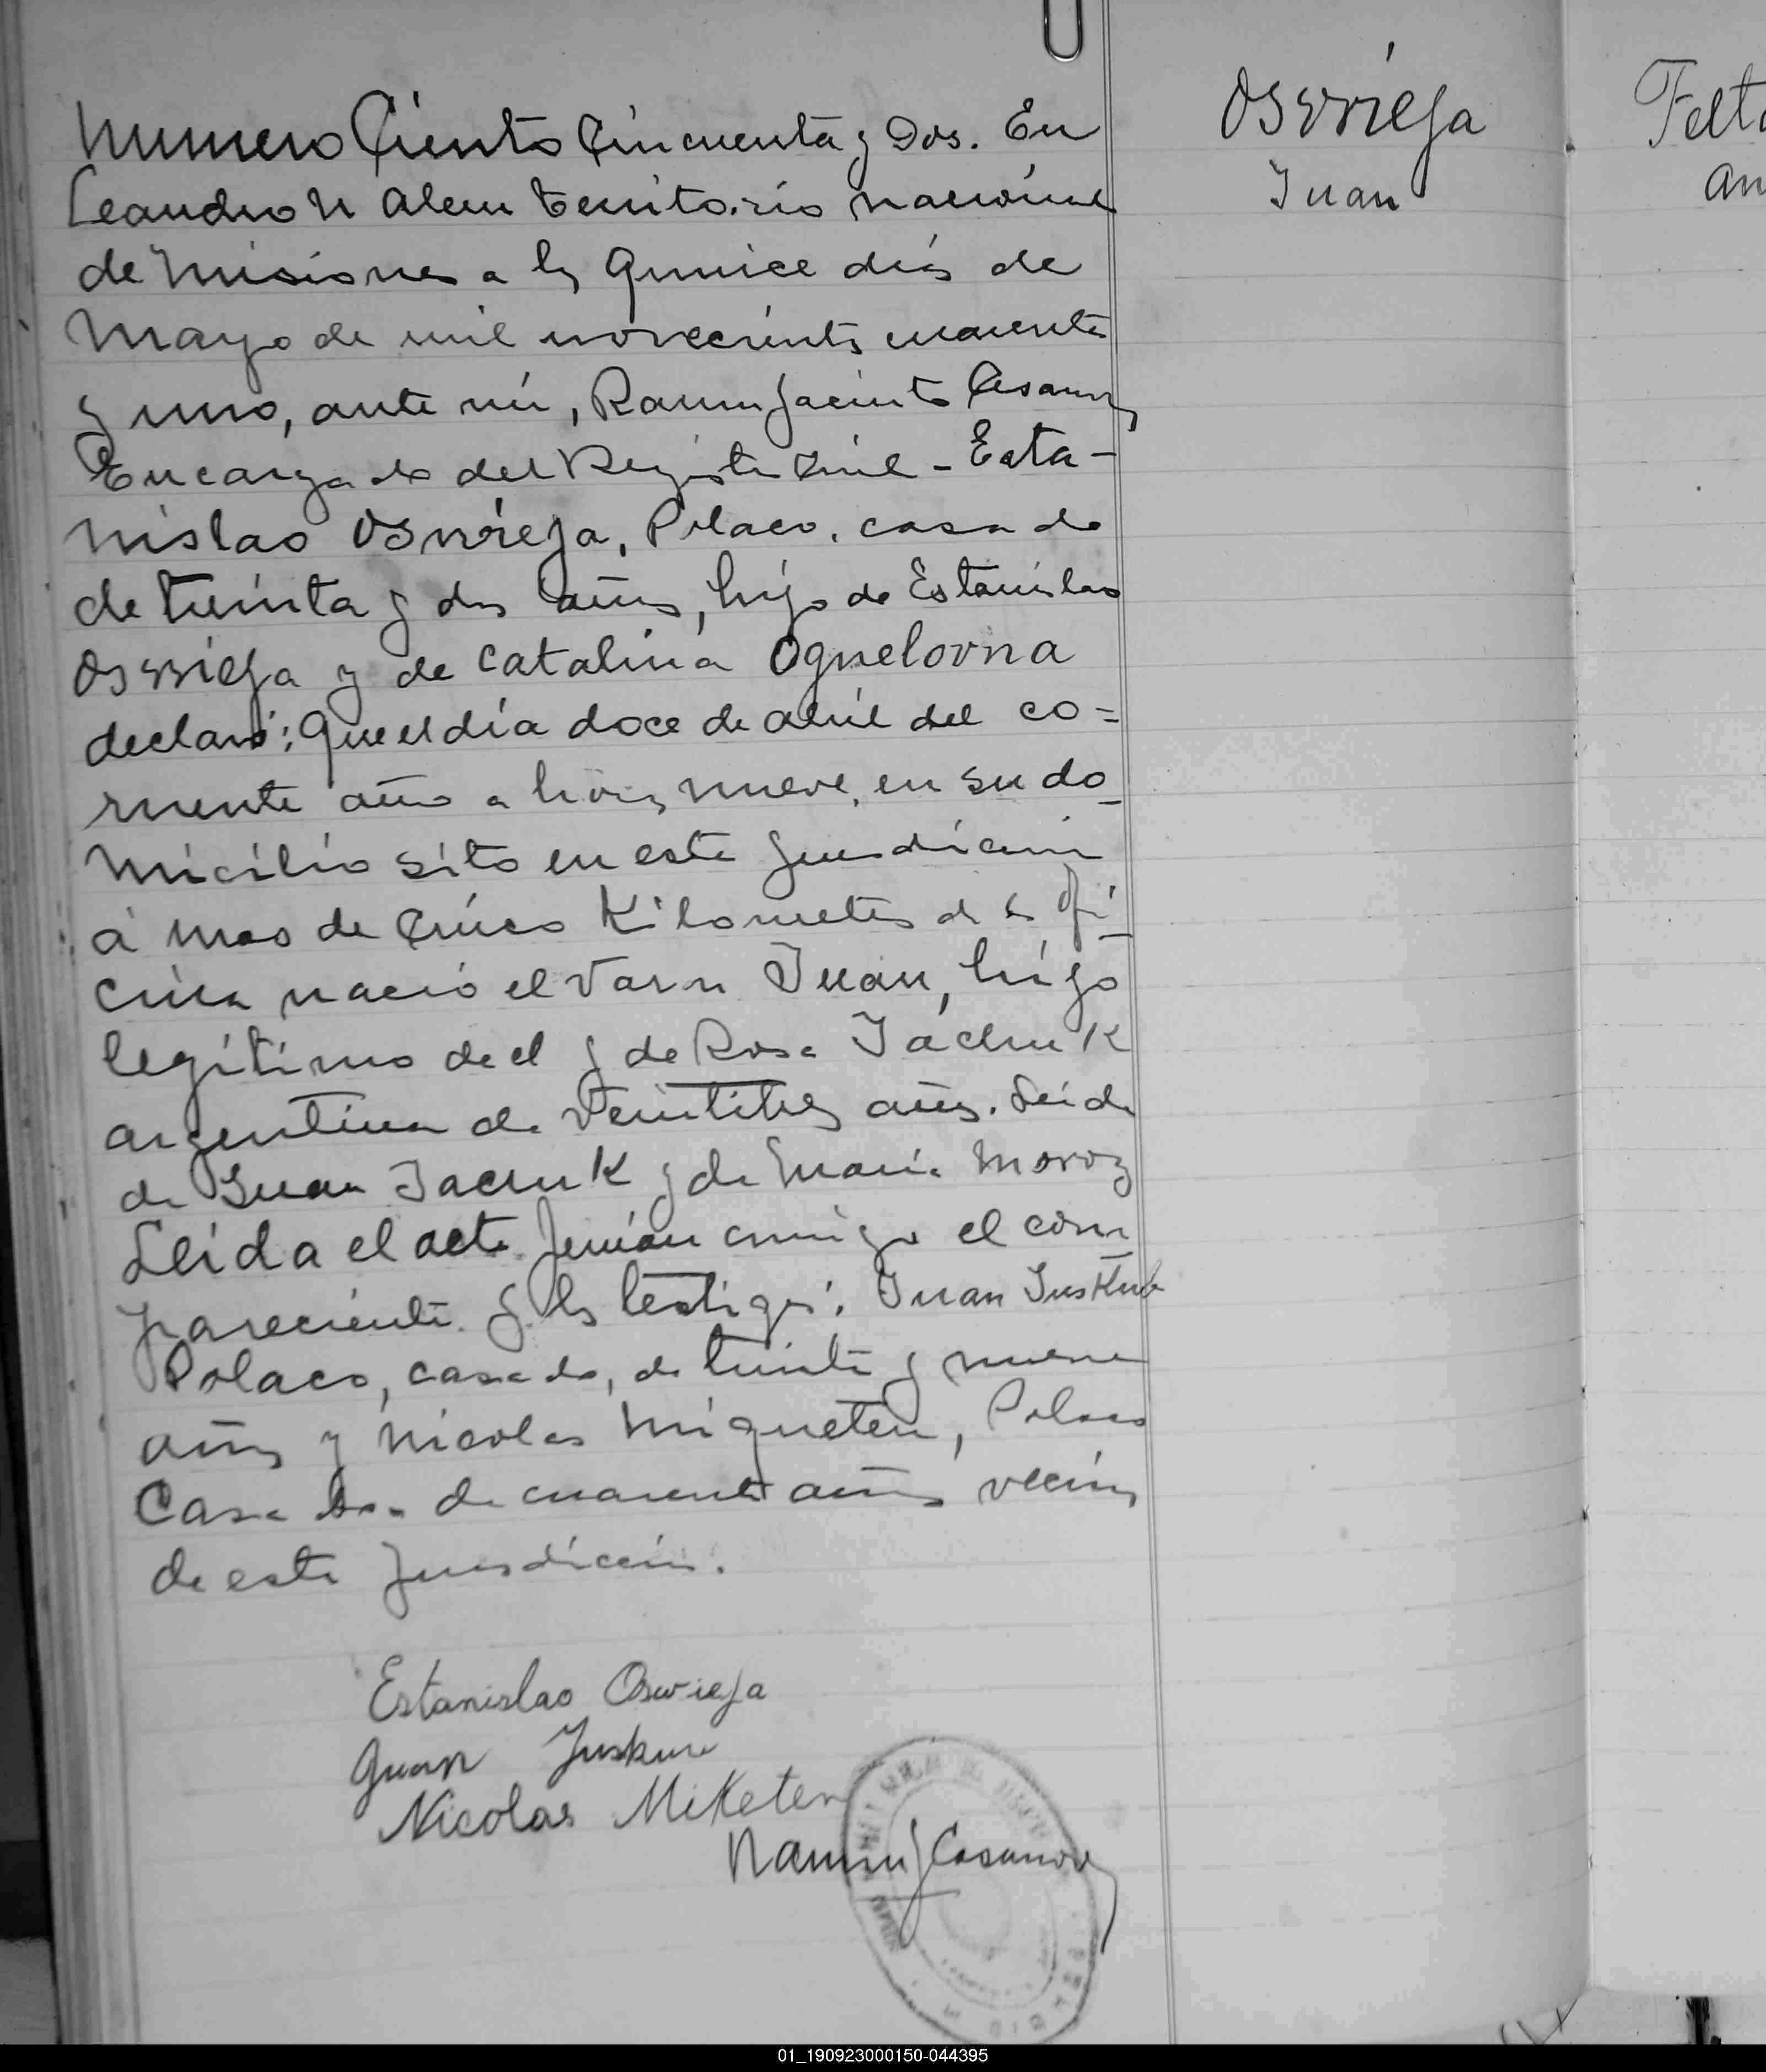 Numero Ciento Cincuenta y Dos. En
Leandro N Alem Territorio nacional
de Misiones a los quince dias de
Mayo de mil novecientos cuarenta
y uno, ante mi, Ramon Jacinto Casanova
Encargado del Registro Civil - Esta-
nislao Oswieja, Polaco, casado
de treinta y dos años, hijo de Estanislao
Oswieja y de Catalina
declaró: Que el día doce de abril del co=
rriente año a horas nueve, en su do_
micilio sito en este jurisdiccion
á mas de cinco Kilometros de la Ofi_
cina nació el varon Juan, hijo
legítimo de el y de Rosa Jachuk
argentina de veintitres años. Leida
de Juan Jacnuk y de Maria Moroz
Leida el acta firmáron conmigo el com_
pareciente y los testigos: Juan
Polaco, casado, de treinta y nueve
años y Nicolas Miqueten, Polaco
Casado. de cuarenta años vecinos
de esta jurisdiccion.
Estanislao Oswieja
Juan
Nicolas Miketen
Ramon J Casanova
Oswieja
Juan
Felt
An
01_190923000150-044395